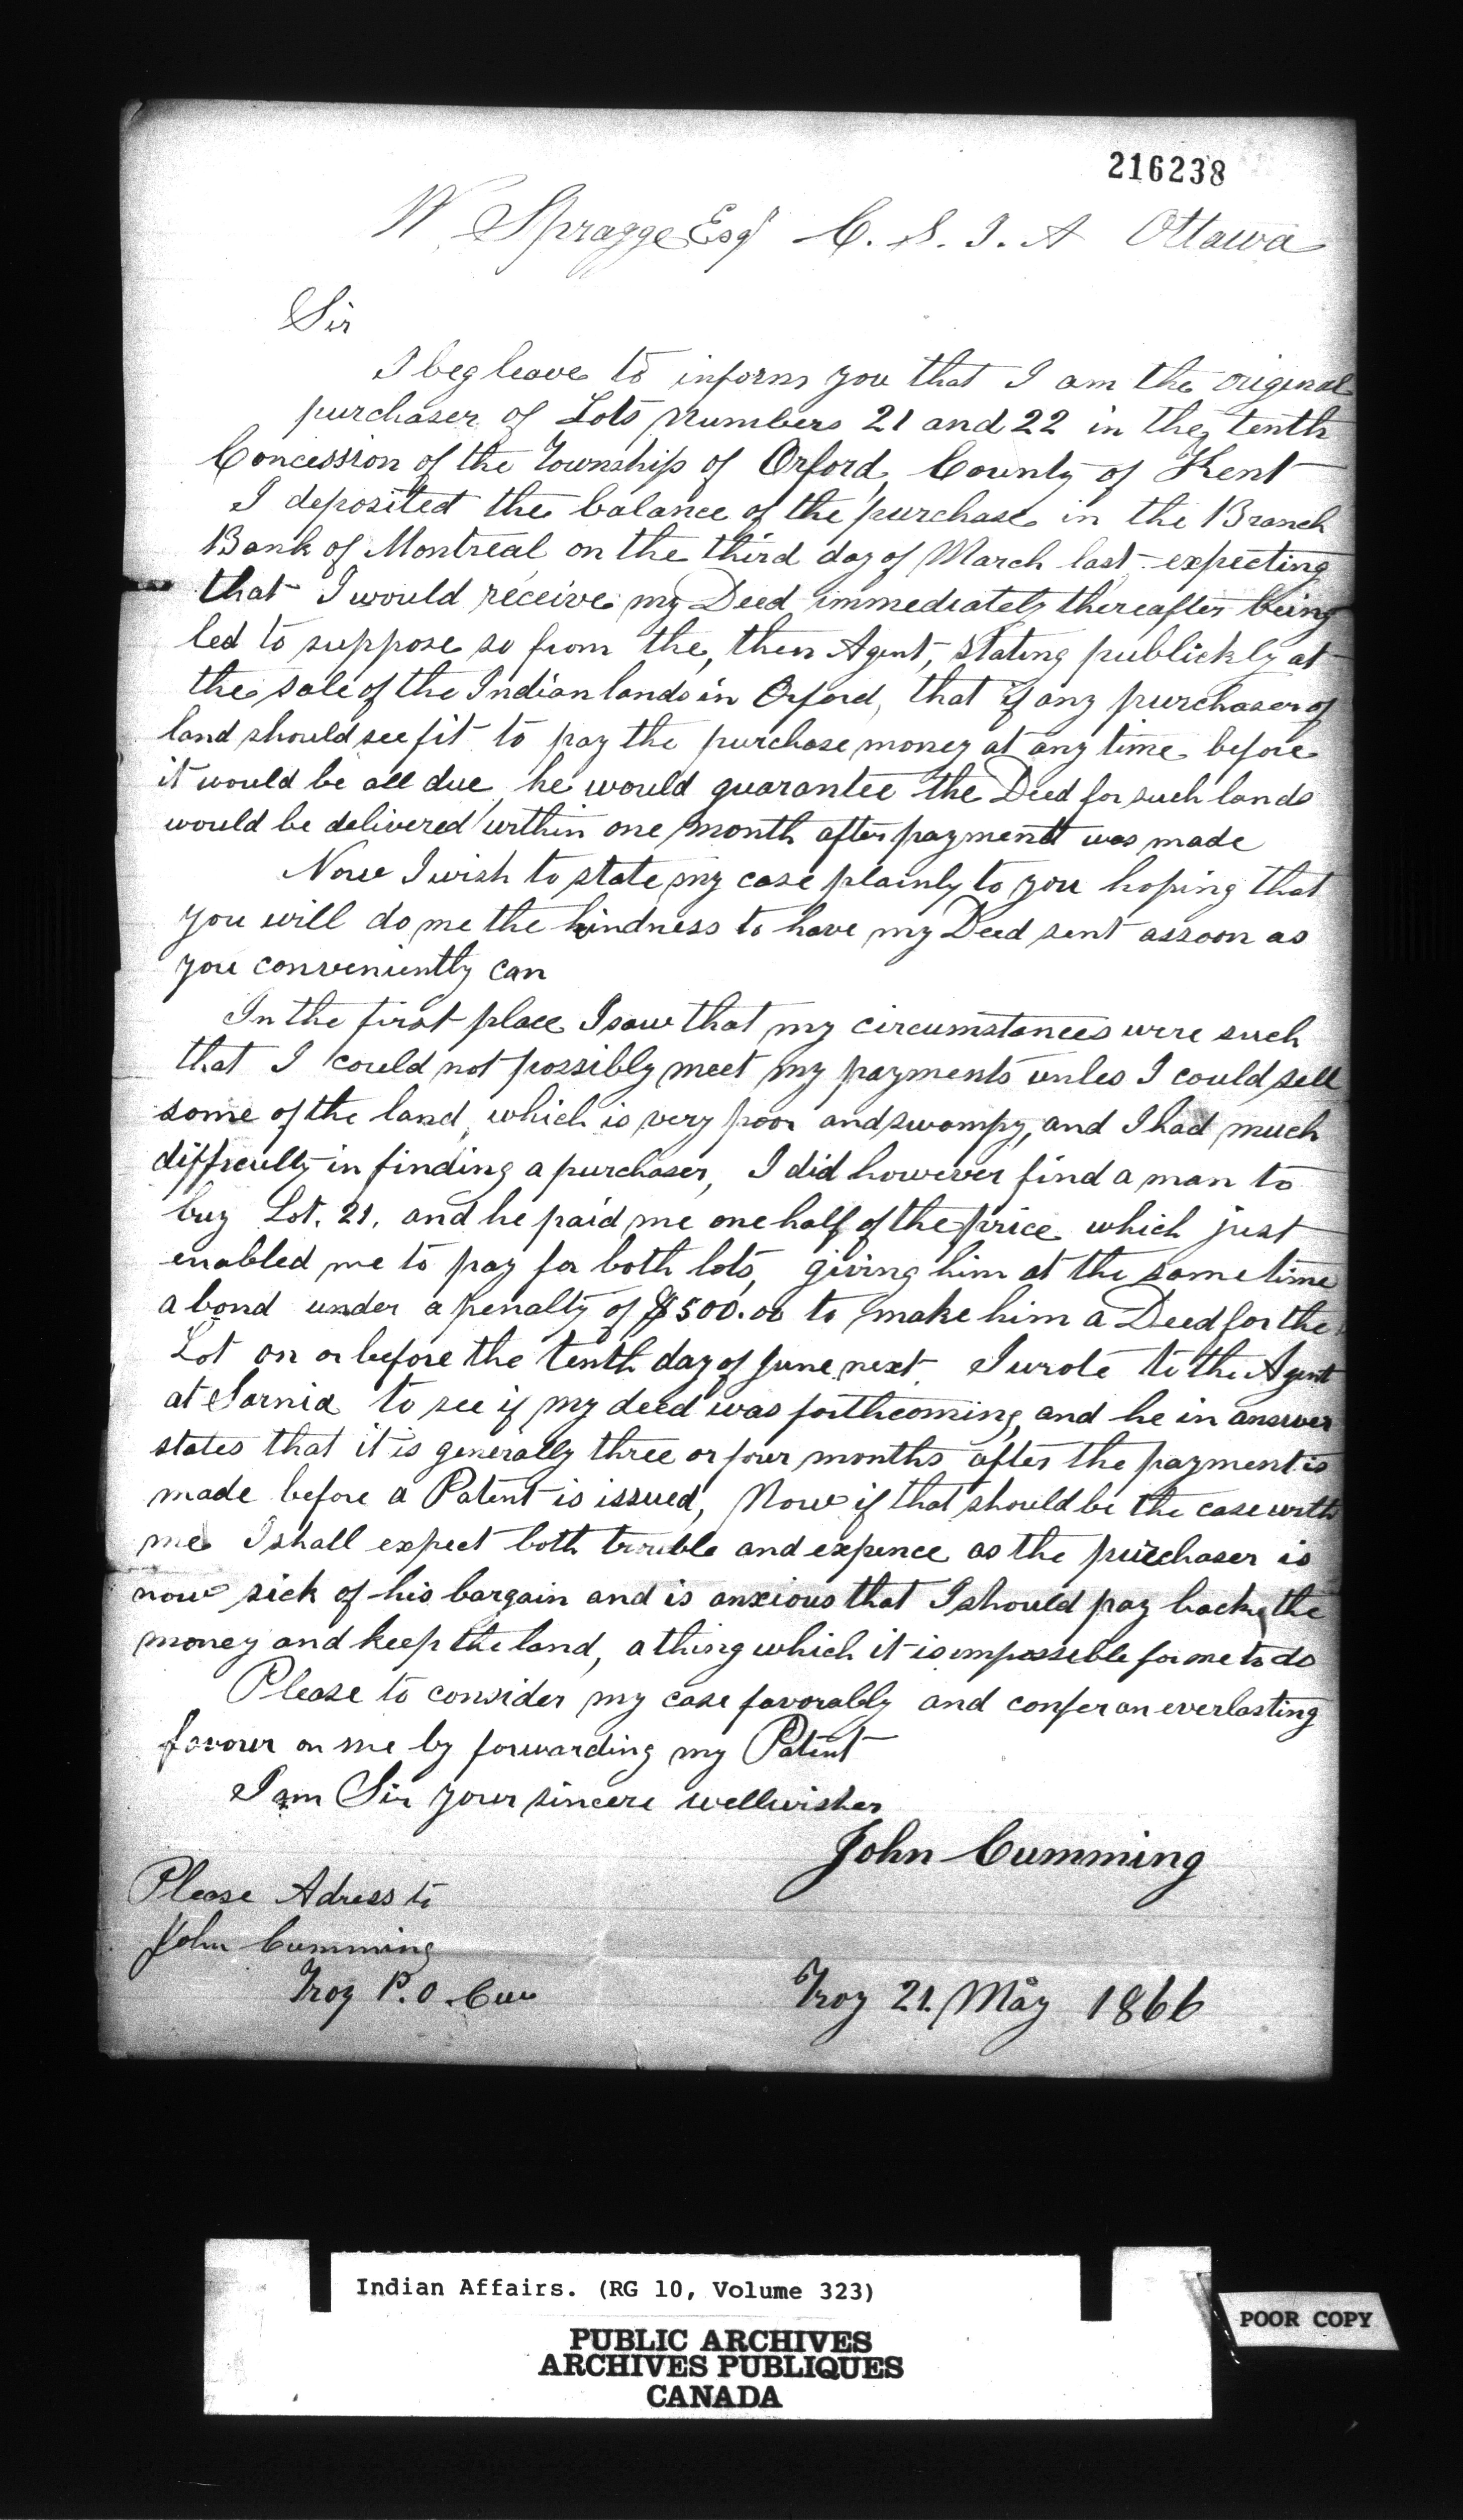 216238
W. Spragge Esqr C. S. I. A Ottawa
Sir
I beg leave to inform you that I am the original
purchaser of Lots numbers 21 and 22 in the tenth
Concession of the Township of Orford, County of Kent
I deposited the balance of the purchase in the Branch
Bank of Montreal on the third day of March last - expecting
that I would receive my Deed immediately thereafter being
led to suppose so from the, then Agent, stating publickly at
the sale of the Indian lands in Orford, that if any purchaser of
land should see fit to pay the purchase money at any time before
it would be all due, he would guarantee the Deed for such lands
would be delivered within one month after payment was made
Now I wish to state my case plainly to you hoping that
you will do me the kindness to have my Deed sent as soon as
you conveniently can
In the first place I saw that my circumstances were such
that I could not possibly meet my payments unles I could sell
some of the land, which is very poor and swampy, and I had much
difficulty in finding a purchaser, I did however find a man to
buy Lot. 21. and he paid me one half of the price which just
enabled me to pay for both lots, giving him at the same time
a bond under a penalty of $500.00 to make him a Deed for the
Lot on or before the tenth day of June next. I wrote to the Agent
at Sarnia to see if my deed was forthcoming, and he in answer
states that it is generally three or four months after the payment is
made before a Patent is issued, Now if that should be the case with
me I shall expect both trouble and expence as the purchaser is
now sick of his bargain and is anxious that I should pay back the
money and keep the land, a thing which it is impossible for me to do
Please to consider my case favorably and confer an everlasting
favour on me by forwarding my Patent
I am Sir your sincere wellwisher
John Cumming
Please Adress to
John Cumming
Troy P.O.
Troy 21 May 1866
Indian Affairs. (RG 10, Volume 323)
PUBLIC ARCHIVES
ARCHIVES PUBLIQUES
CANADA
POOR COPY